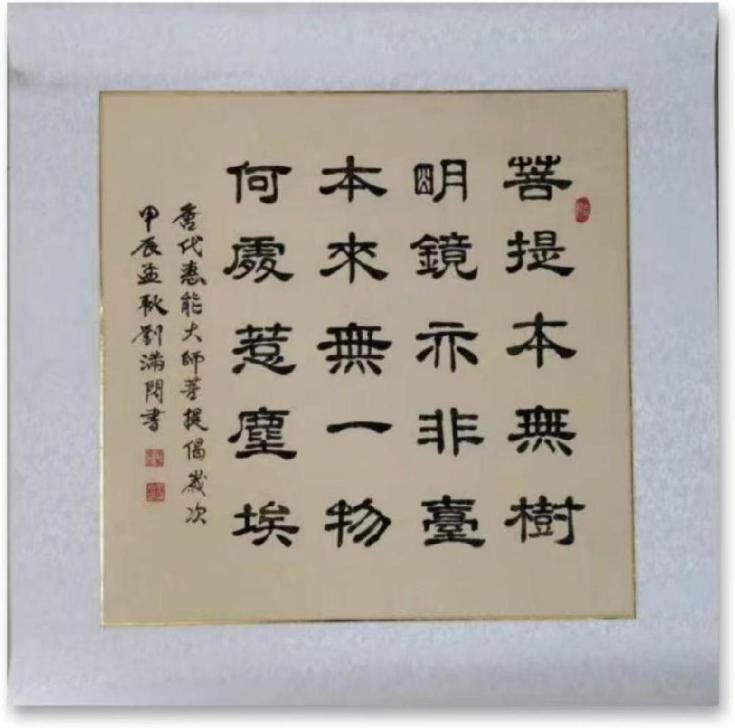 菩提本無樹
明鏡亦非臺
本來無一物
何處惹塵埃
唐代惠能大師菩提偈歲次
甲辰孟秋劉滿閃書